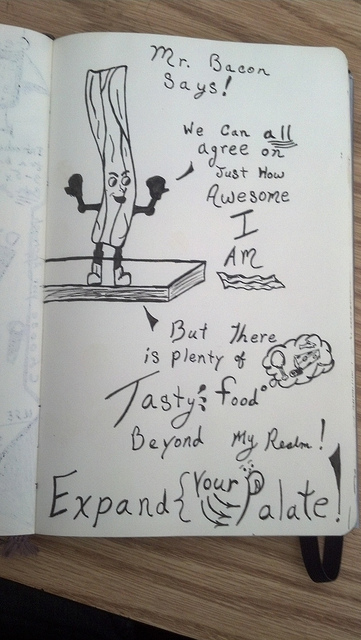 Mr. Bacon
Says!
We Can all
agree on
Just How
Awesome
I
AM
But There
is plenty of
Tasty food
Beyond My Realm!
Expand {your Palate!